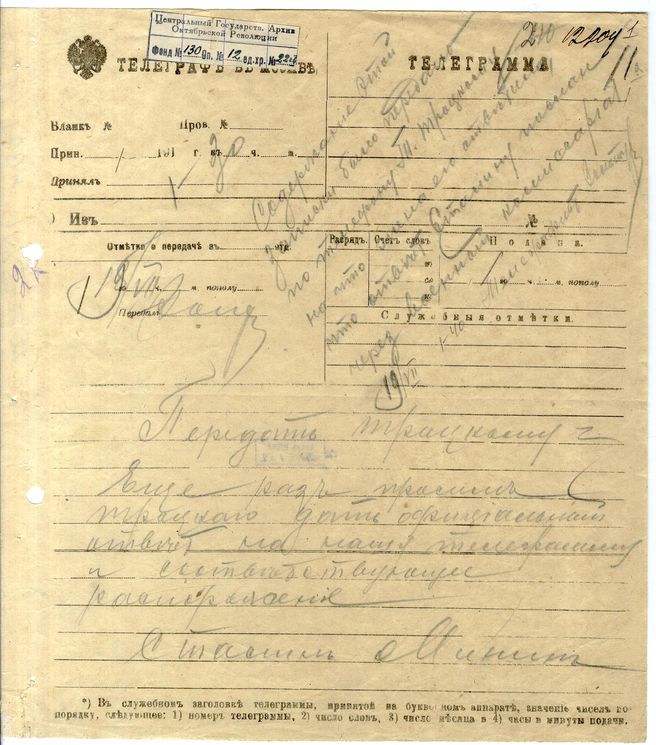 Центральный Государств. Архив
Октябрьской Революции
Фонд № 130 Оп. № 12 ед. хр. №
ТЕЛЕГРАФЪ ВЪ МОСКВѢ
ТЕЛЕГРАММА
11
Бланкъ № Пров. №
Прин. 191 г. въ ч. м.
Принялъ
1-30
) Изъ
№
Отмѣтка о передачѣ въ
го ч. м. пополу
Передалъ
19 VII
Разрядъ. Счетъ словъ. Подача.
го ч. м. пополу
Служебныя отмѣтки.
Содержание этой
записки было передано
по телефону т. Троцкому
на что мне его ответили
что ответ Сталину послан
через военный комиссариат
1-40
19 VII
Передать Троцкому
Еще разъ просимъ
Троцкаго дать официальный
ответ на нашу телеграмму
и соответствующее
распоряжение
Сталин Минин
*) Въ служебномъ заголовкѣ телеграммы, принятой на буквенномъ аппаратѣ, значеніе чиселъ по-
порядку, слѣдующее: 1) номеръ телеграммы, 2) число словъ, 3) число мѣсяца и 4) часы и минуты подачи.